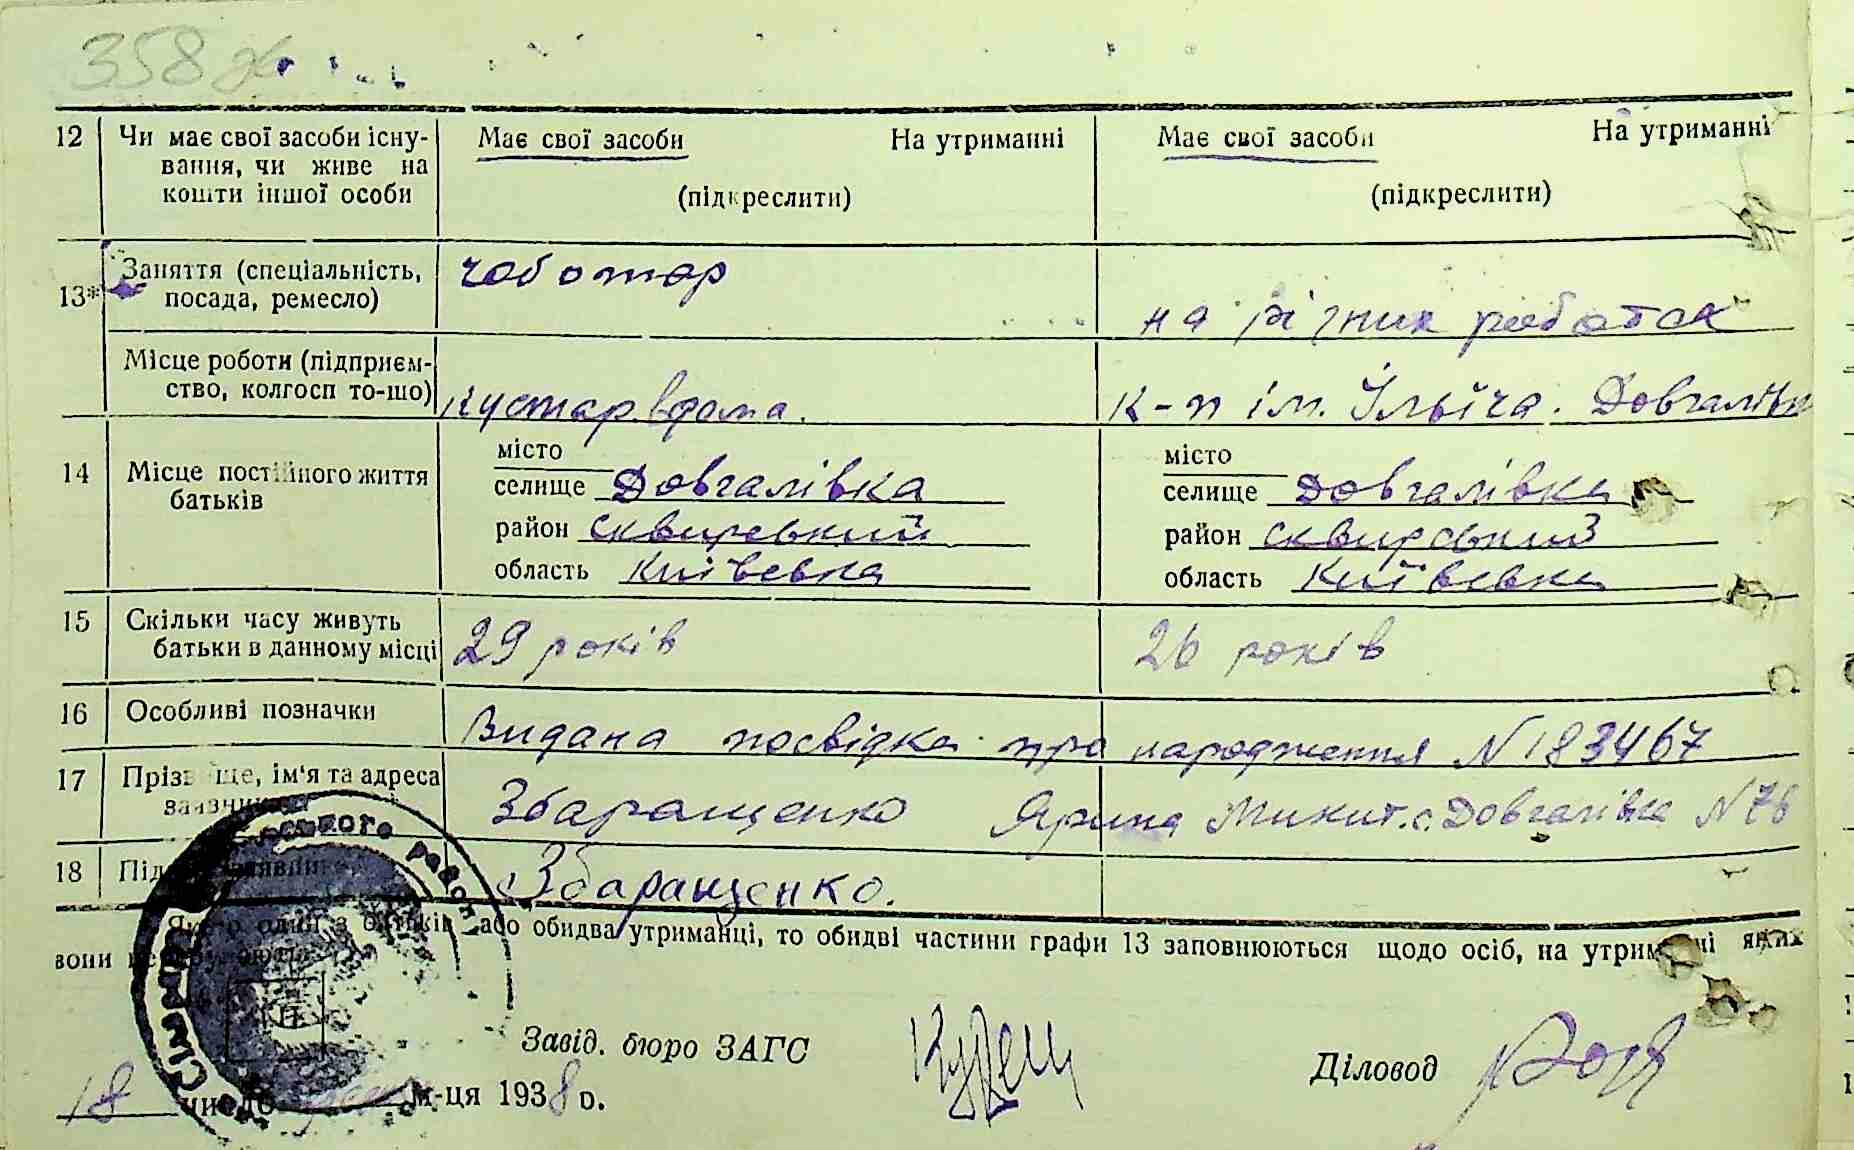 358
12 Чи має свої засоби існу- Має свої засоби На утриманні Має свої засоби На утриманні
вання, чи живе на
кошти іншої особи (підкреслити) (підкреслити)
13* Заняття (спеціальність, чоботар
посада, ремесло) на різних роботах
Місце роботи (підприєм-
ство, колгосп то-що) Кустар вдома. К-п ім. Ілліча. Довгалівка
14 Місце постійного життя батьків
місто місто
селище Довгалівка селище Довгалівка
район сквирський район сквирський
область Київська область Київська
15 Скільки часу живуть
батьки в данному місці 29 років 26 років
16 Особливі позначки Видана посвідка про народження N 183467
17 Прізвище, ім'я та адреса
заявника Збаращенко Ярина Микит. с. Довгалівка N 76
18 Під Збаращенко.
Якщо один з батьків або обидва утриманці, то обидві частини графи 13 заповнюються щодо осіб, на утриманні яких
вони
Завід. бюро ЗАГС Діловод
18 число м-ця 1938 р.
ського району